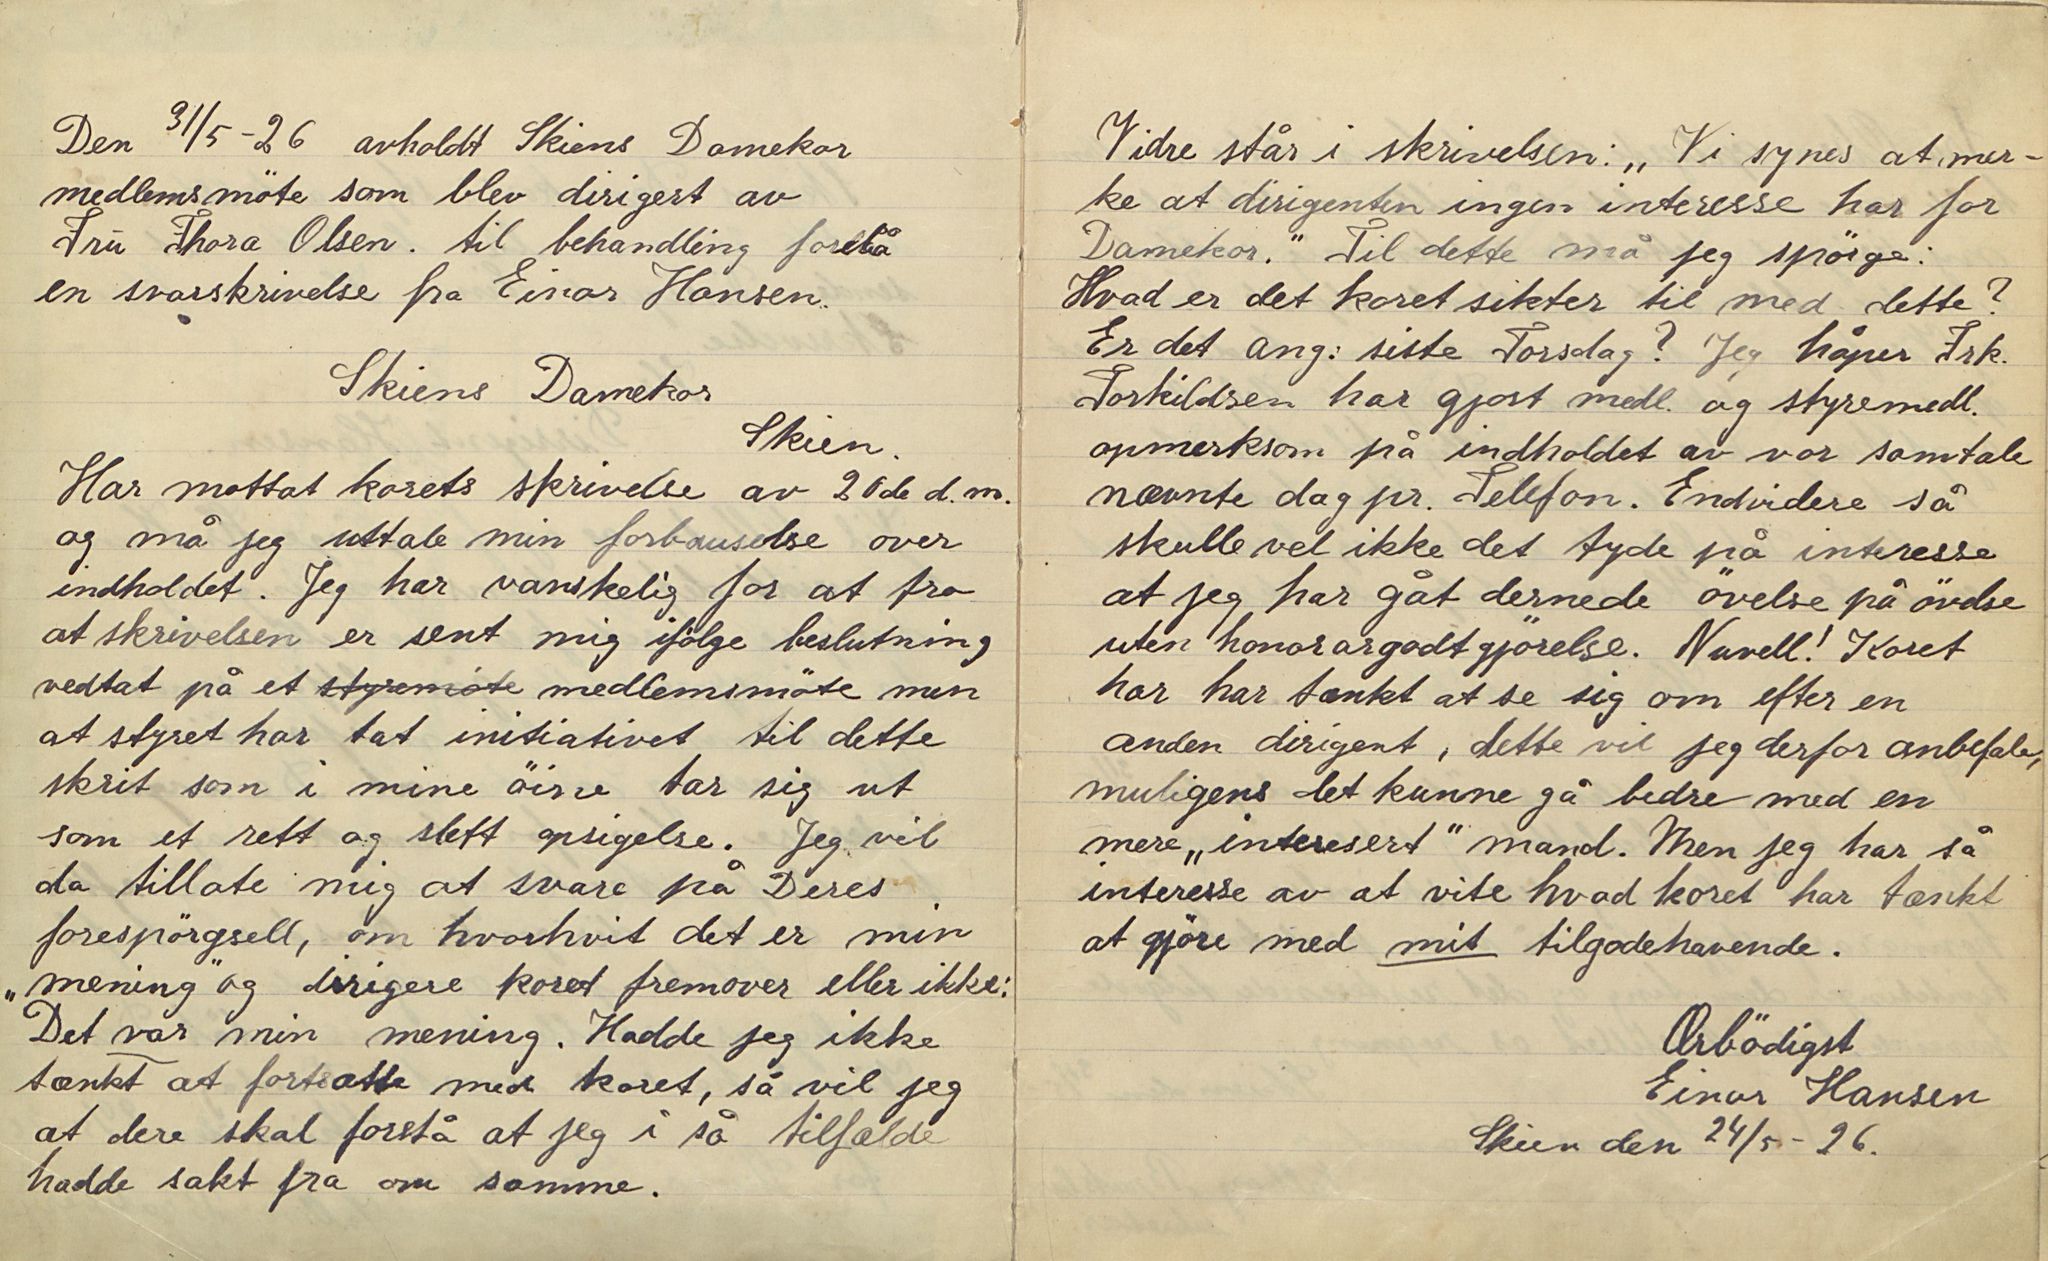 Den 31/5-26 avholdt Skiens Damekor
medlemsmöte som blev dirigert av
Fru Thora Olsen. til behandling forelå
en svarskrivelse fra Einar Hansen.
Skiens Damekor
Skien.
Har mottat korets skrivelse av 20de d.m.
og må jeg uttale min forbauselse over
indholdet. Jeg har vanskelig for at tro
at skrivelsen er sent mig ifölge beslutning
vedtat på et styremöte medlemsmöte men
at styret har tat initiativet til dette
skrit som i mine öine tar sig ut
som et rett og slett opsigelse. Jeg vil
da tillate mig at svare på Deres
forespörgsell, om hvorhvit det er min
„mening" og dirigere koret fremover eller ikke:
Det var min mening. Hadde jeg ikke
tænkt at fortsatte med koret, så vil jeg
at dere skal forstå at jeg i så tilfælde
hadde sakt fra om samme.
Vidre står i skrivelsen: „Vi synes at mer-
ke at dirigenten ingen interesse har for
Damekor." Til dette må jeg spörge:
Hvad er det koret sikter til med dette?
Er det ang: siste Torsdag? Jeg håper Frk.
Torkildsen har gjort medl. og styremedl.
opmerksom på indholdet av vor samtale
nævnte dag pr. Telefon. Endvidere så
skulle vel ikke det tyde på interesse
at jeg har gåt dernede övelse på övelse
uten honorargodtgjörelse. Nuvell! Koret
har har tænkt at se sig om efter en
anden dirigent, dette vil jeg derfor anbefale,
muligens det kunne gå bedre med en
mere „interesert" mand. Men jeg har så
interesse av at vite hvad koret har tænkt
at gjöre med mit tilgodehavende.
Ærbödigst
Einar Hansen
Skien den 24/5-26.